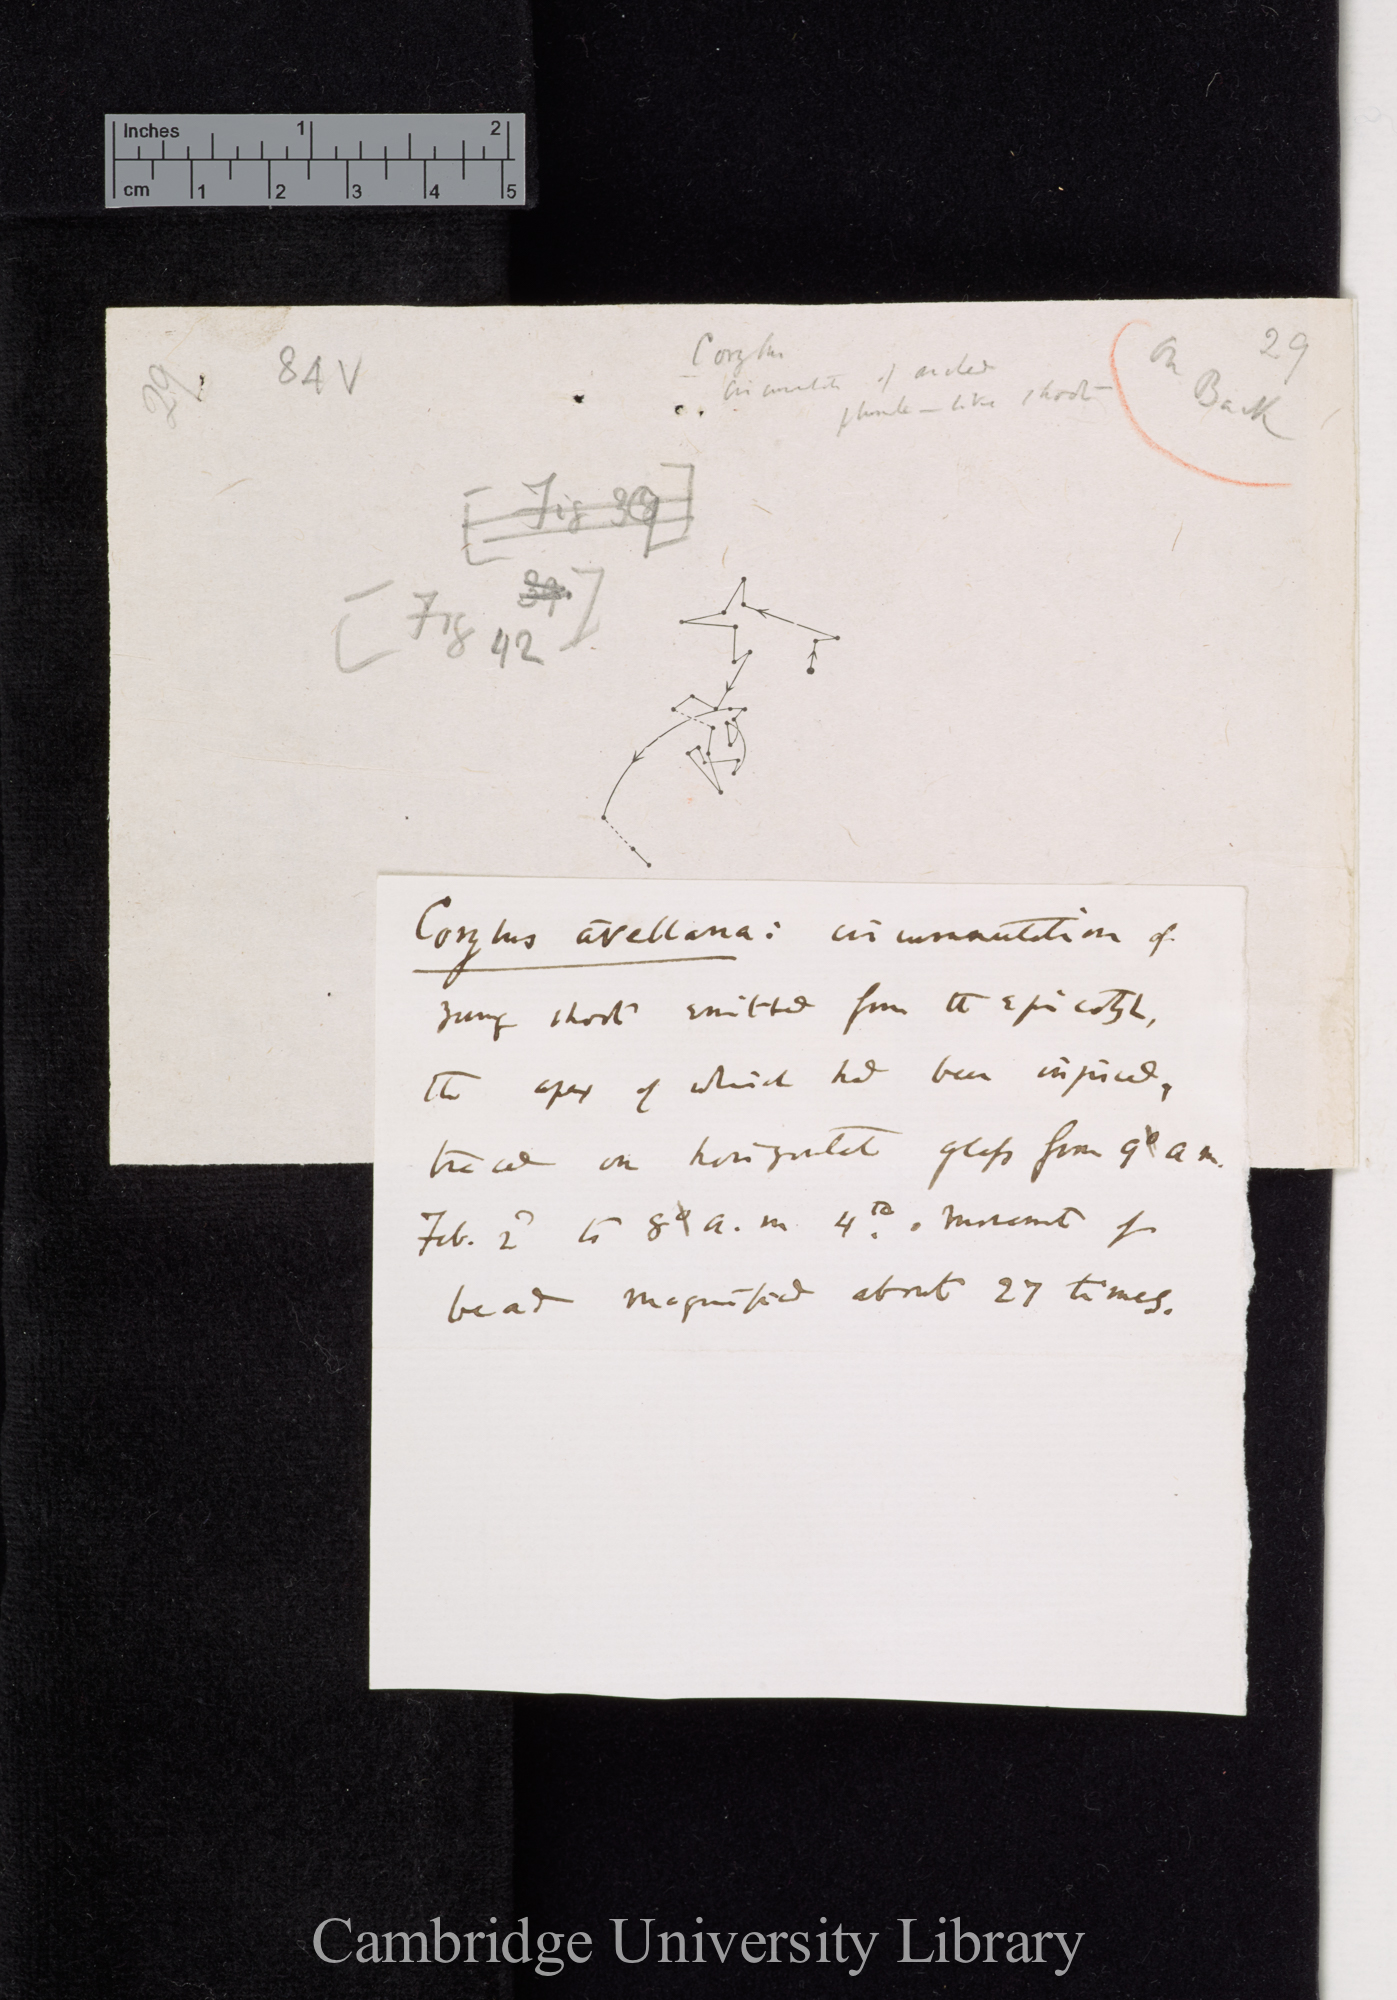 Inches 1 2
cm 1 2 3 4 5
29
84 V
Corylus
circumnutn of arched
plumule-like shoot
on
Back
29
[Fig 39]
[Fig 39.]
42
Corylus avellana: circumnutation of
young shoot emitted from the epicotyl,
the apex of which had been injured,
traced on horizontal glass from 9 a m.
Feb. 2d to 8 a.m 4th. Movement of
bead magnified about 27 times.
Cambridge University Library